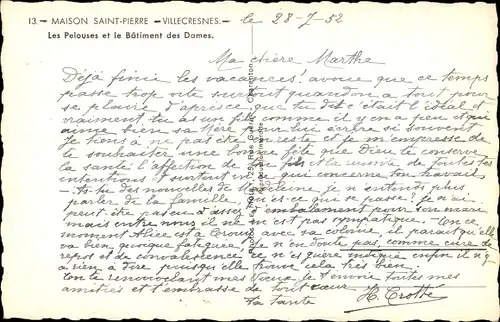 13. — MAISON SAINT-PIERRE — VILLECRESNES. —
Les Pelouses et le Bâtiment des Dames.
le 28-7-52
Ma chère Marthe
Déjà finie les vacances! avoue que ce temps
passe trop vite surtout quand on a tout pour
se plaire d'après ce que tu dis c'était l'idéal et
vraiment tu as un fils comme il y en a peu et qui
aime bien sa Mère pour lui écrire si souvent
Je tiens à ne pas être et je m'empresse de
te souhaiter une bonne fête que Dieu te conserve
la santé l'affection de fils et la réussite de toutes tes
intentions et surtout en ce qui concerne ton travail
— As-tu des nouvelles de Madeleine je n'entends plus
parler de la famille, qu'est-ce qui se passe? je n'ai
peut-être pas eu assez d'emballement pour son mari
mais entre nous il ne m'est pas sympathique — En ce
moment Alice est à avec sa colonie, il paraît qu'elle
va bien quoique fatiguée je n'en doute pas, comme cure de
repos et de convalescence ce n'est guère indiqué enfin il n'y
a rien à dire puisqu'elle trouve cela très bien.
En te renouvelant mes vœux je t'envoie toutes mes
amitiés et t'embrasse de tout cœur
ta tante H. Crotté